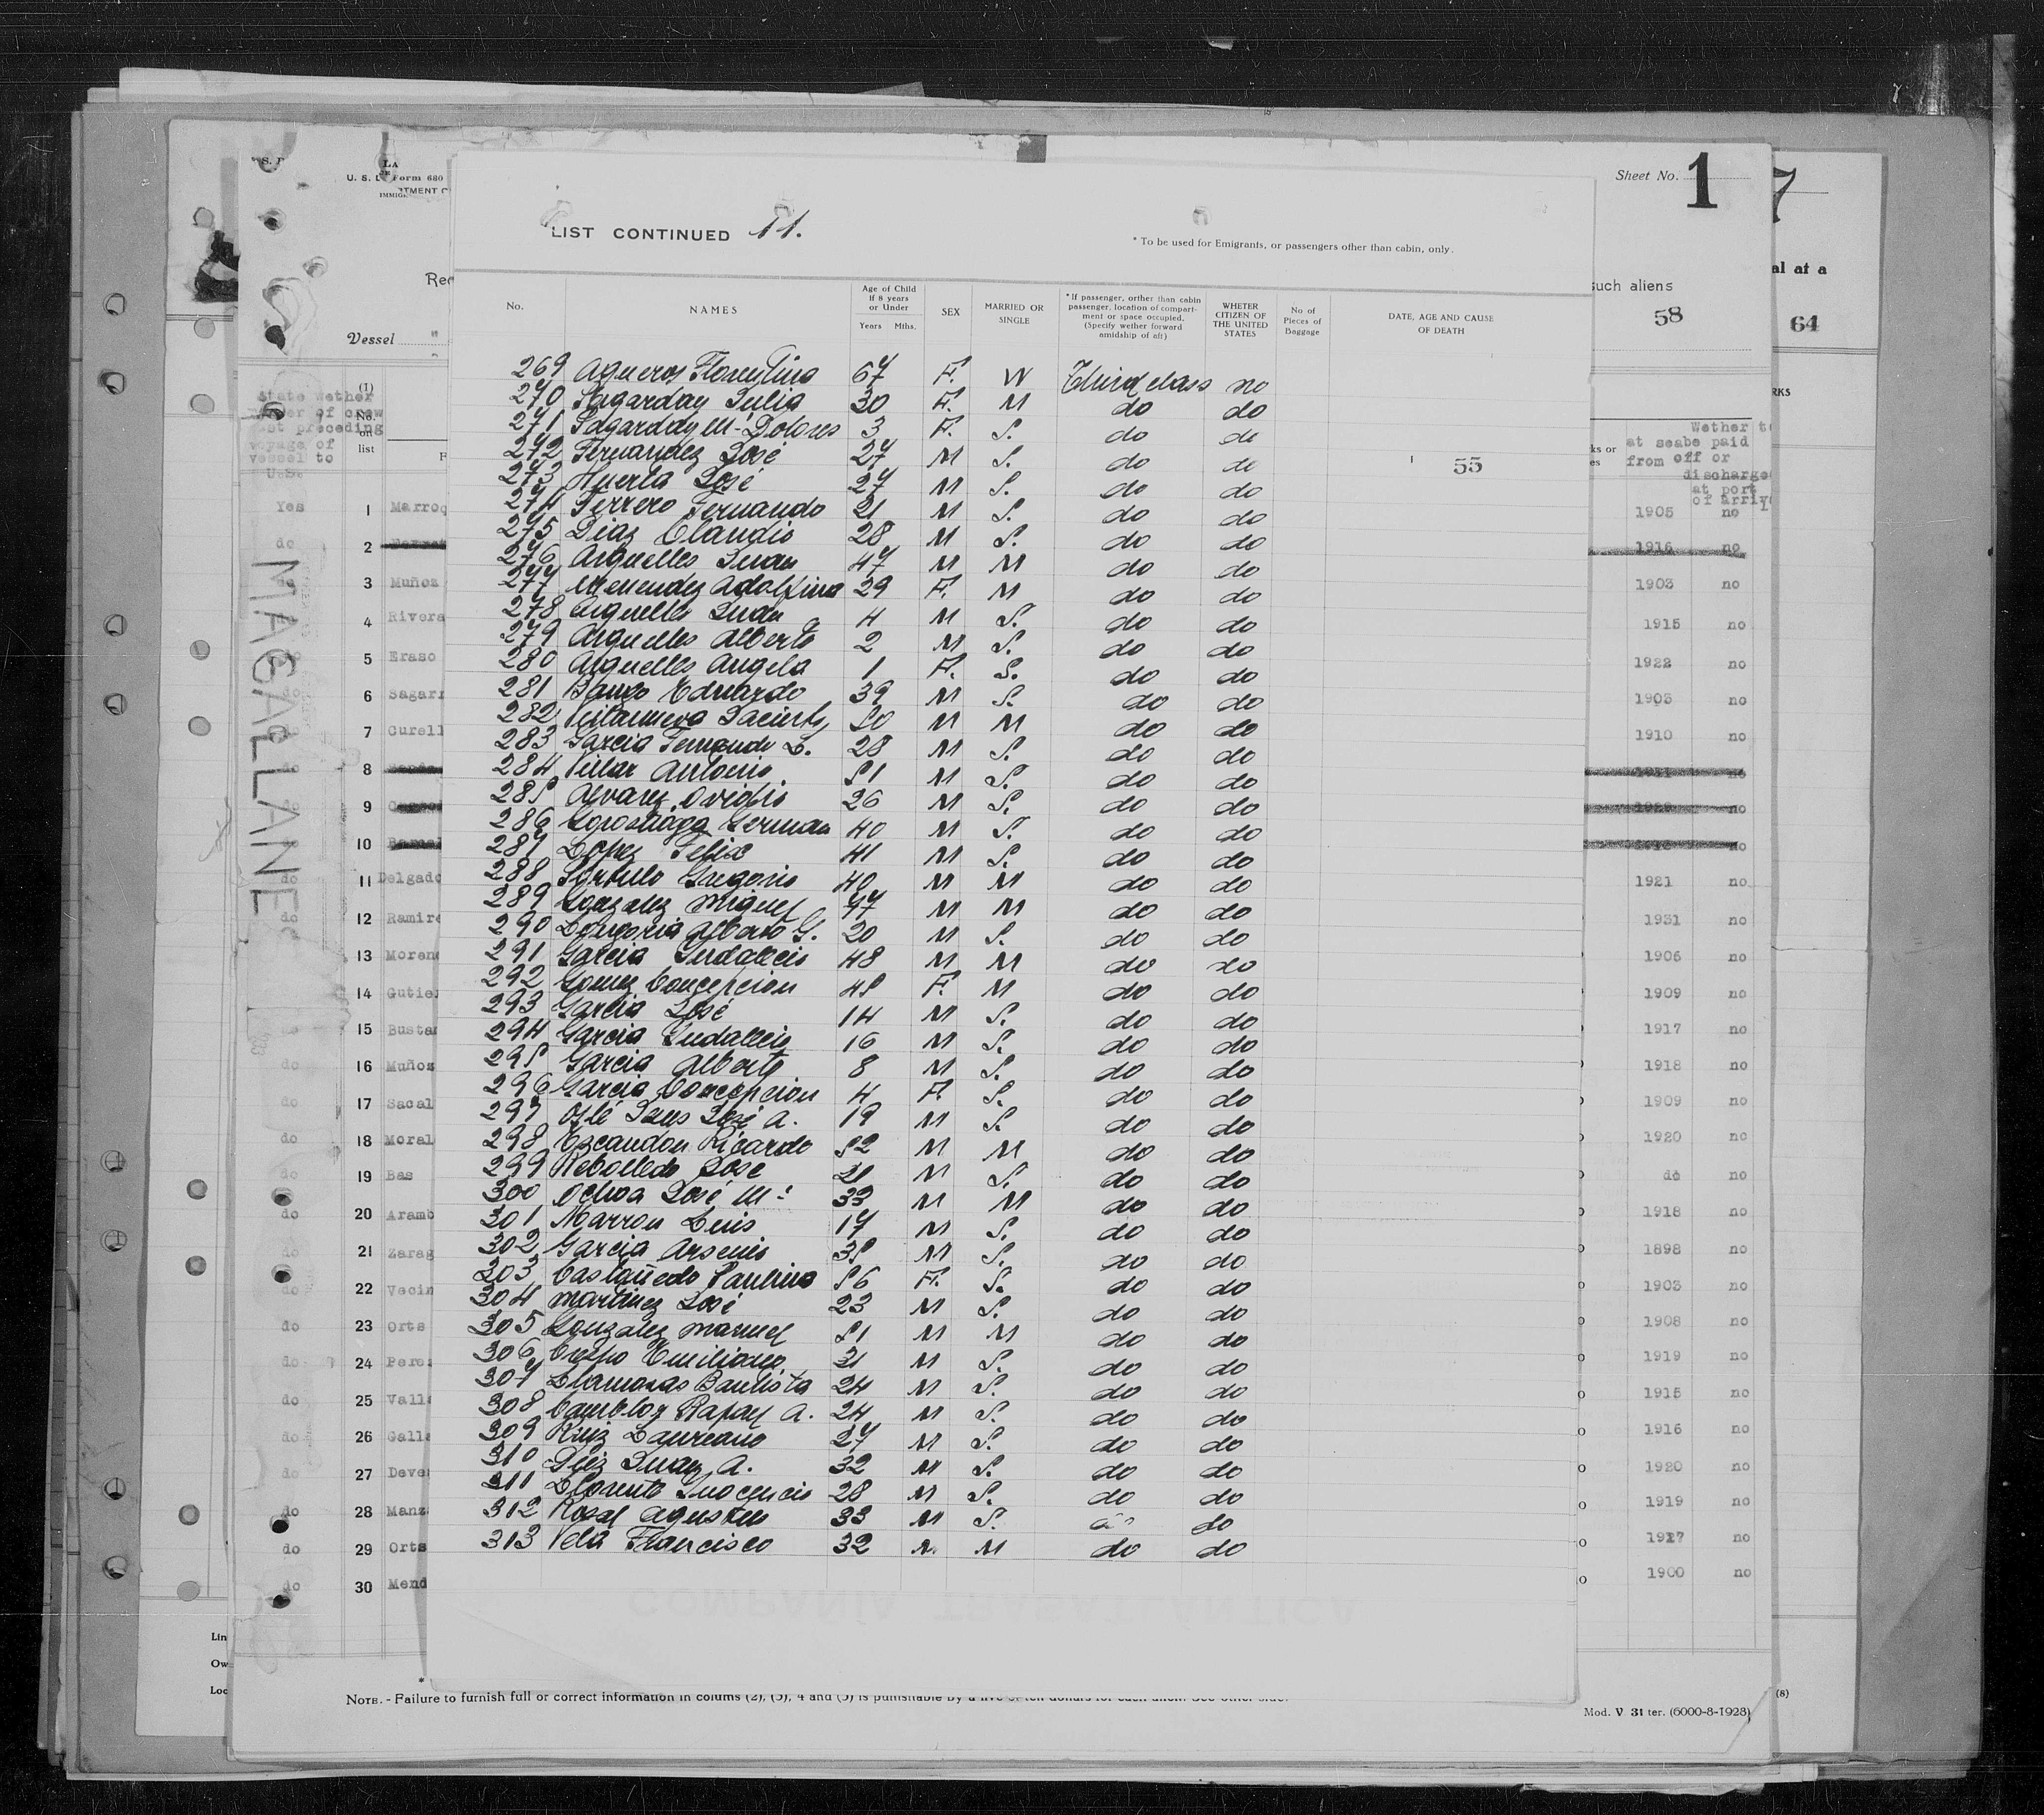 Sheet No. 1
7
LIST CONTINUED 11.
* To be used for Emigrants, or passengers other than cabin, only.
U. S. Form 680
such aliens
al at a
58
64
Vessel
No. NAMES Age of Child if 8 years or Under Years Mths. SEX MARRIED OR SINGLE * If passenger, orther than cabin passenger, location of compartment or space occupied. (Specify wether forward amidship of aft) WHETER CITIZEN OF THE UNITED STATES No of Pieces of Baggage DATE, AGE AND CAUSE OF DEATH
55
269 Agueros Florentina 67 F. W Third class no
270 Sagarday Julia 30 F. M do do
271 Sagarday Mª Dolores 3 F. S. do do
272 Fernandez José 27 M S. do do
273 Huerta José 27 M S. do do
274 Ferrero Fernando 21 M S. do do
275 Diaz Claudio 28 M S. do do
276 Arguelles Juan 47 M M do do
277 Menendez Adolfina 29 F. M do do
278 Arguelles Juan 4 M S. do do
279 Arguelles Alberto 2 M S. do do
280 Arguelles Angela 1 F. S. do do
281 Bango Eduardo 39 M S. do do
282 Villanueva Jacinto 50 M M do do
283 Garcia Fernando L. 28 M S. do do
284 Villar Antonio 51 M S. do do
285 Alvarez Ovidio 26 M S. do do
286 Gorostiaga German 40 M S. do do
287 Lopez Felix 41 M S. do do
288 Gregorio 40 M M do do
289 Gonzalez Miguel 47 M M do do
290 Longoria Alberto G. 20 M S. do do
291 Garcia Indalecio 48 M M do do
292 Gomez Concepcion 45 F. M do do
293 Garcia José 14 M S. do do
294 Garcia Indalecio 16 M S. do do
295 Garcia Alberto 8 M S. do do
296 Garcia Concepcion 4 F. S. do do
297 José A. 19 M S. do do
298 Escandon Ricardo 52 M M do do
299 Rebolledo José 21 M S. do do
300 Ochoa José Mª 33 M M do do
301 Marron Luis 17 M S. do do
302 Garcia Arsenio 35 M S. do do
303 Castañedo Paulina 56 F. S. do do
304 Martinez José 23 M S. do do
305 Gonzalez Manuel 51 M M do do
306 Crespo Emiliano 31 M S. do do
307 Llamosas Bautista 24 M S. do do
308 Cambloz Rafael A. 24 M S. do do
309 Ruiz Laureano 27 M S. do do
310 Diez Juan A. 32 M S. do do
311 Llorente Inocencio 28 M S. do do
312 Rosal Agustin 33 M S. do do
313 Vela Francisco 32 M M do do
MAGALLANE
State Wether
voyage of
vessel to
(1) No. on list
Yes 1 Marroq 1905 no
do 2 1916 no
do 3 Muñoz 1903 no
4 Rivera 1915 no
5 Eraso 1922 no
6 Sagarr 1903 no
7 Curell 1910 no
8
9 no
10 no
do 11 Delgado 1921 no
do 12 Ramire 1931 no
13 Moreno 1906 no
14 Gutier 1909 no
15 Bustam 1917 no
do 16 Muñoz 1918 no
do 17 Sacal 1909 no
do 18 Moral 1920 no
do 19 Bas do no
do 20 Aramb 1918 no
do 21 Zarag 1898 no
do 22 Vecin 1903 no
do 23 Orts 1908 no
do 24 Perez 1919 no
do 25 Valls 1915 no
do 26 Galla 1916 no
do 27 Deve 1920 no
do 28 Manz 1919 no
do 29 Orts 1927 no
do 30 Mend 1900 no
at sea be paid
from off or
discharge
at port
of arriv
NOTE. - Failure to furnish full or correct information in colums (2), (3), 4 and (5) is punishable by a
Mod. V 31 ter. (6000-8-1928)
(8)